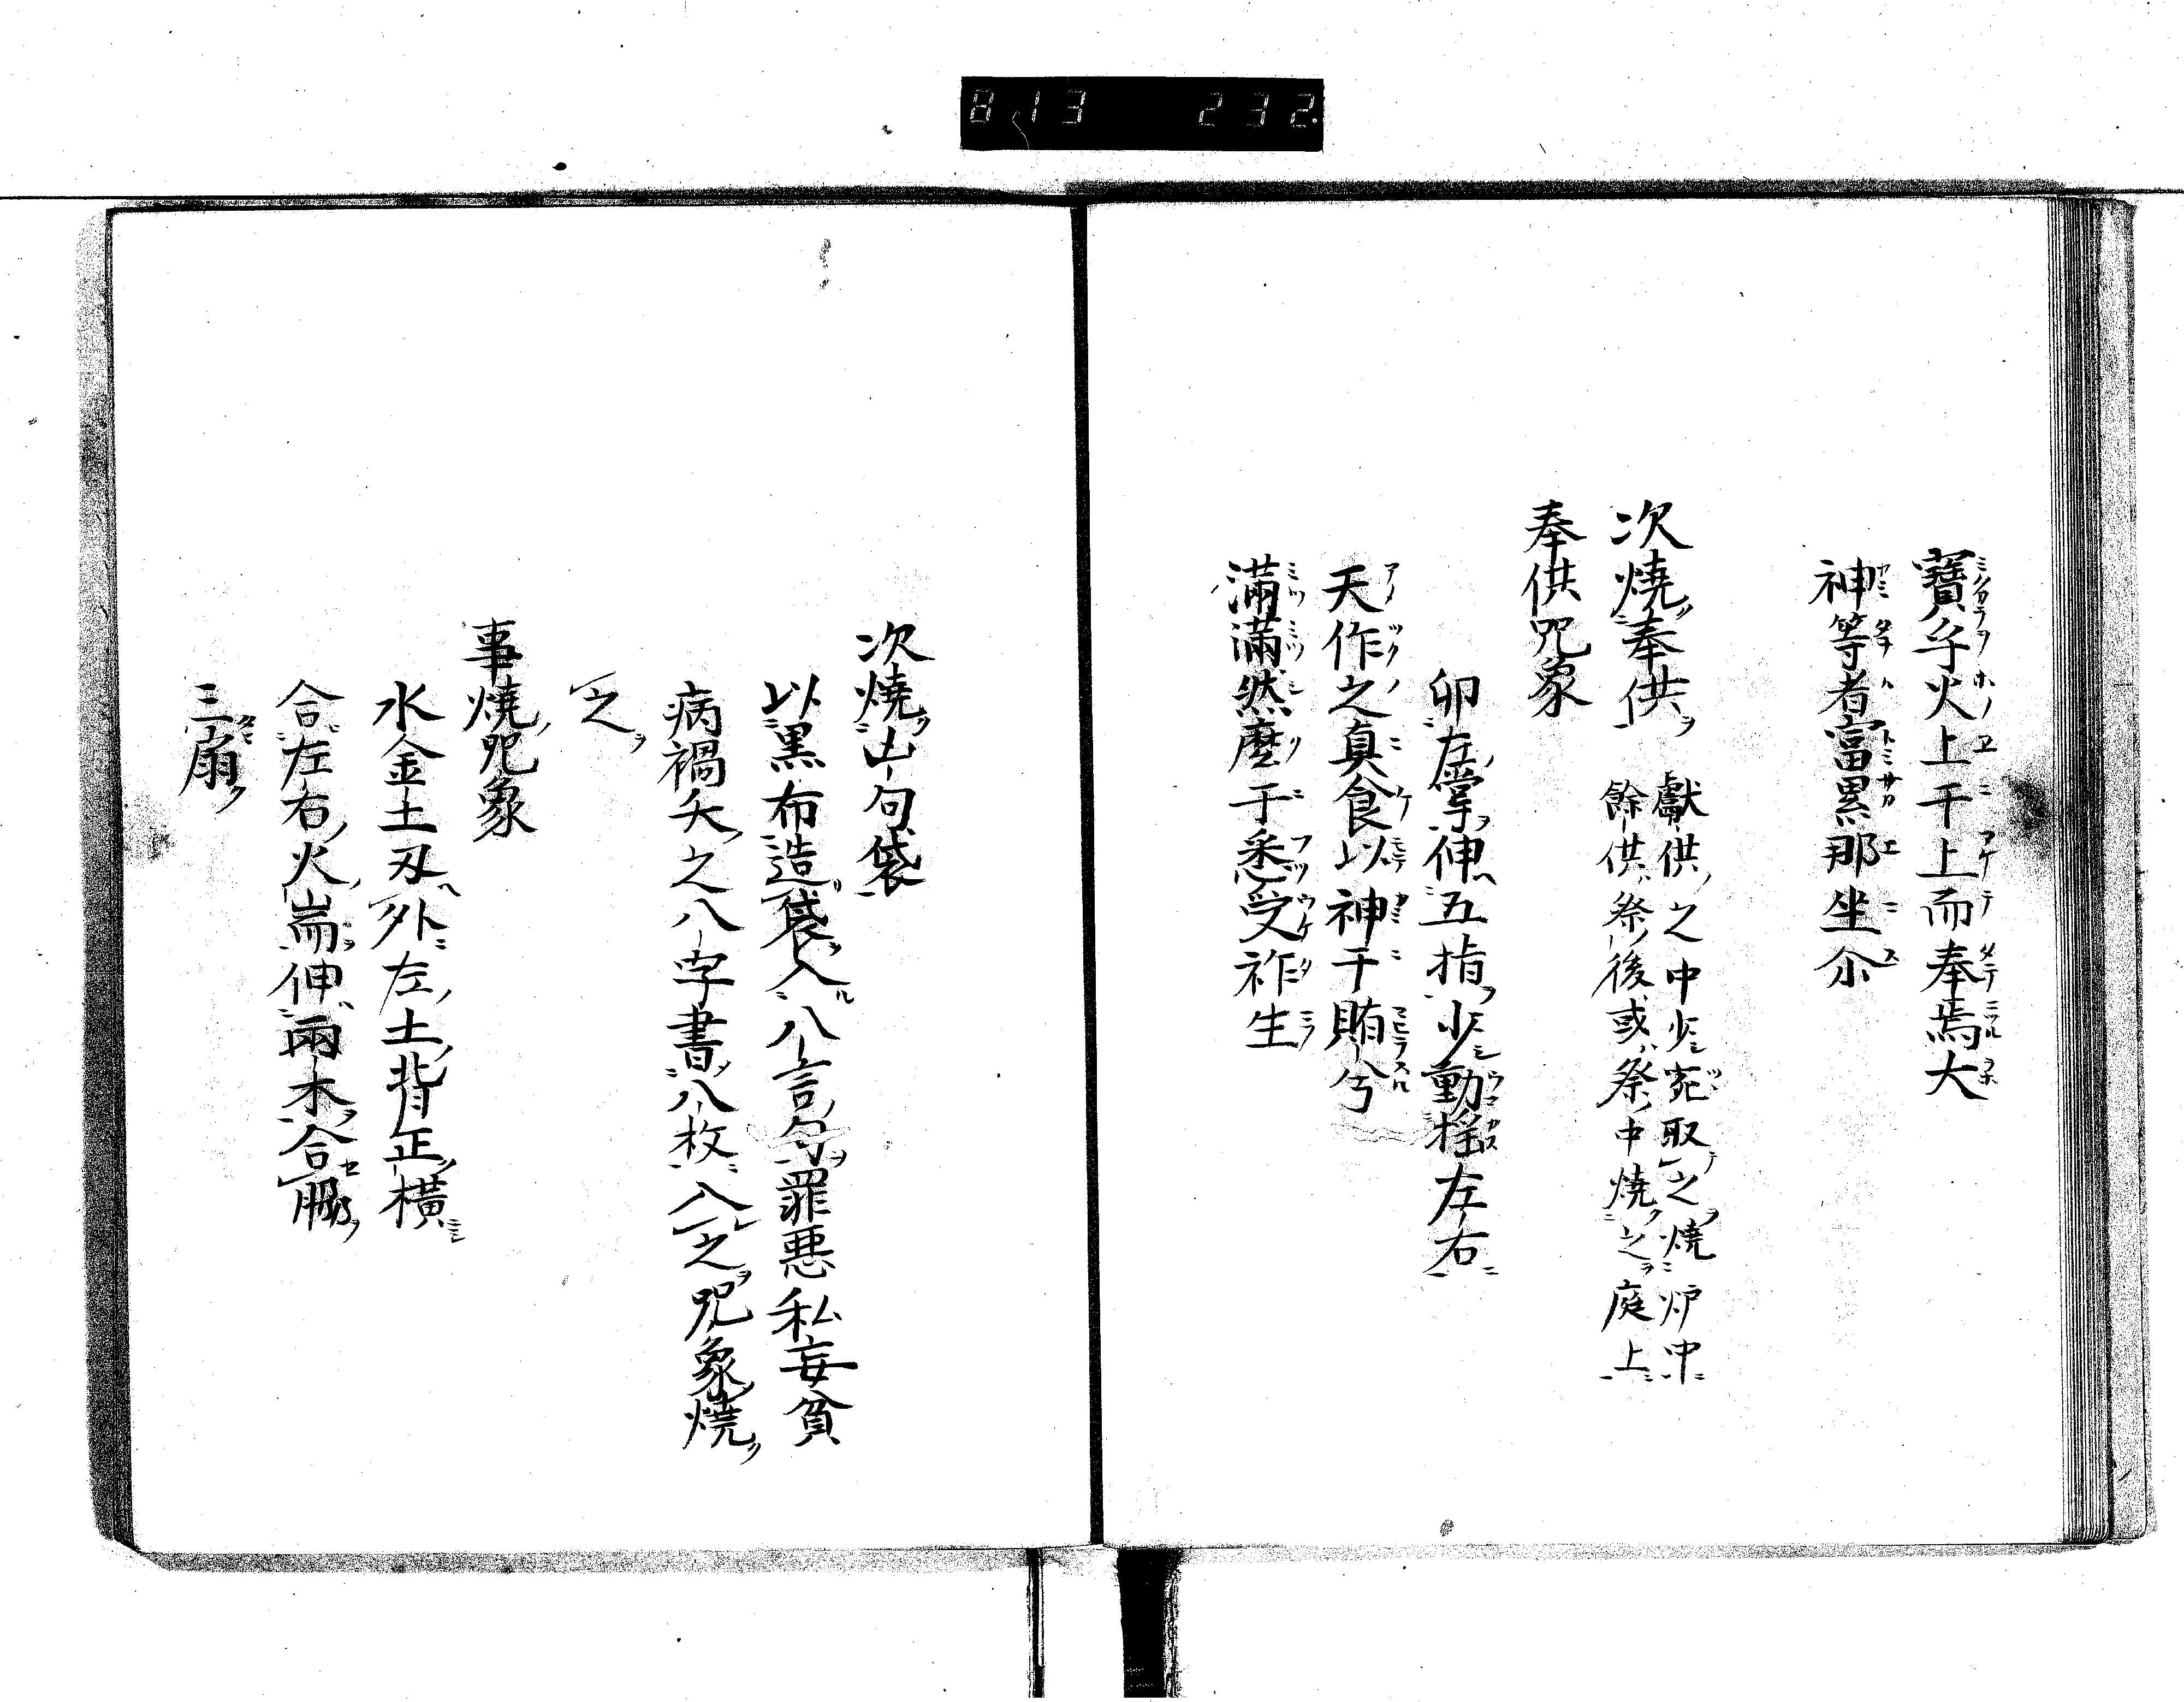 813 232
寶乎火上干上而奉焉大
神等者富累那坐尒
次燒奉供 獻供之中少宛取之燒炉中
餘供祭後或祭中燒之庭上
奉供咒象
卯左掌伸五指少動揺左右
天作之真食以神干賄兮
滿滿然麼于悉受祚生
次燒凶句袋
以黒布造袋入八言句罪悪私妄貧
病禍夭之八字書八枚入之咒象燒
之
事燒咒象
水金土刄外左土背正橫
合左右火耑伸兩木合腳
三扇